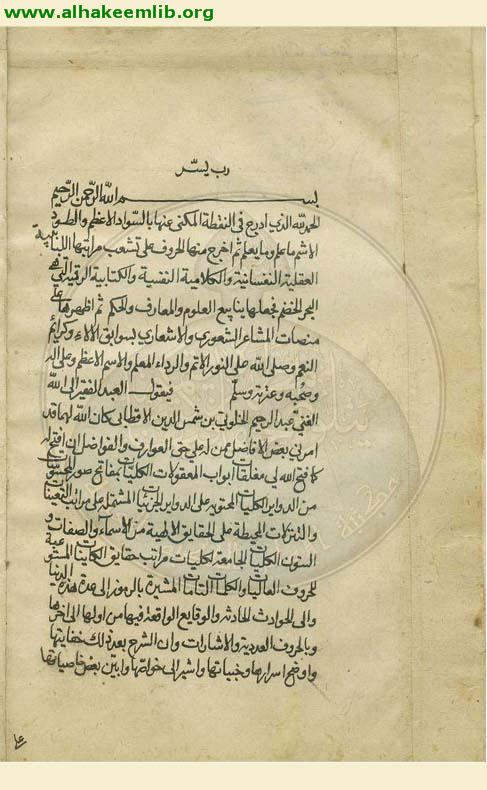 www.alhakeemlib.org
رب يسّر
بسم الله الرحمن الرحيم
الحمد لله الذي ادرج في النقطة المكنى عنها بالسواد الاعظم والطود
الاشم ما علم وما يعلم ثم اخرج منها الحروف على تشعب مراتبها
العقلية النفسانية والكلامية النفسية والكتابية الرقمية التي هي
البحر الخضم فجعلها ينابيع العلوم والمعارف والحكم ثم اظهرها على
منصات المشاعر الشعوري والاشعاري بسوابق الالاء وكرائم
النعم وصلى الله على النور الاتم والرداء المعلم والاسم الاعظم وعلى اله
وصحبه وعترته وسلم فيقول العبد الفقير الى الله
الغني عبد الرحيم الخلوتي بن شمس الدين كان الله لهما قد
امرني بعض الافاضل ممن له علي حق العوارف والفواضل ان افتح له
كما فتح الله لي مغلقات ابواب المعقولات الكليات بمفاتح صور المحسوسات
من الدواير الكليات المحتوية على الدواير الجزئيات المشتملة على مراتب التعينات
والتنزلات المحيطة على الحقايق الالهية من الاسماء والصفات و
الستون الكليات الجامعة لكليات مراتب حقايق الكاينات
للحروف العاليات والكلمات التامات المشيرة بالرموز الى مدة هذه الدنيا
والى الحوادث الحادثة والوقايع الواقعة فيها من اولها الى اخرها
وبالحروف العددية والاشارات وان اشرح بعد ذلك خفاياتها
واوضح اسرارها وخبياتها واشير الى خواصها وابين بعض خاصياتها